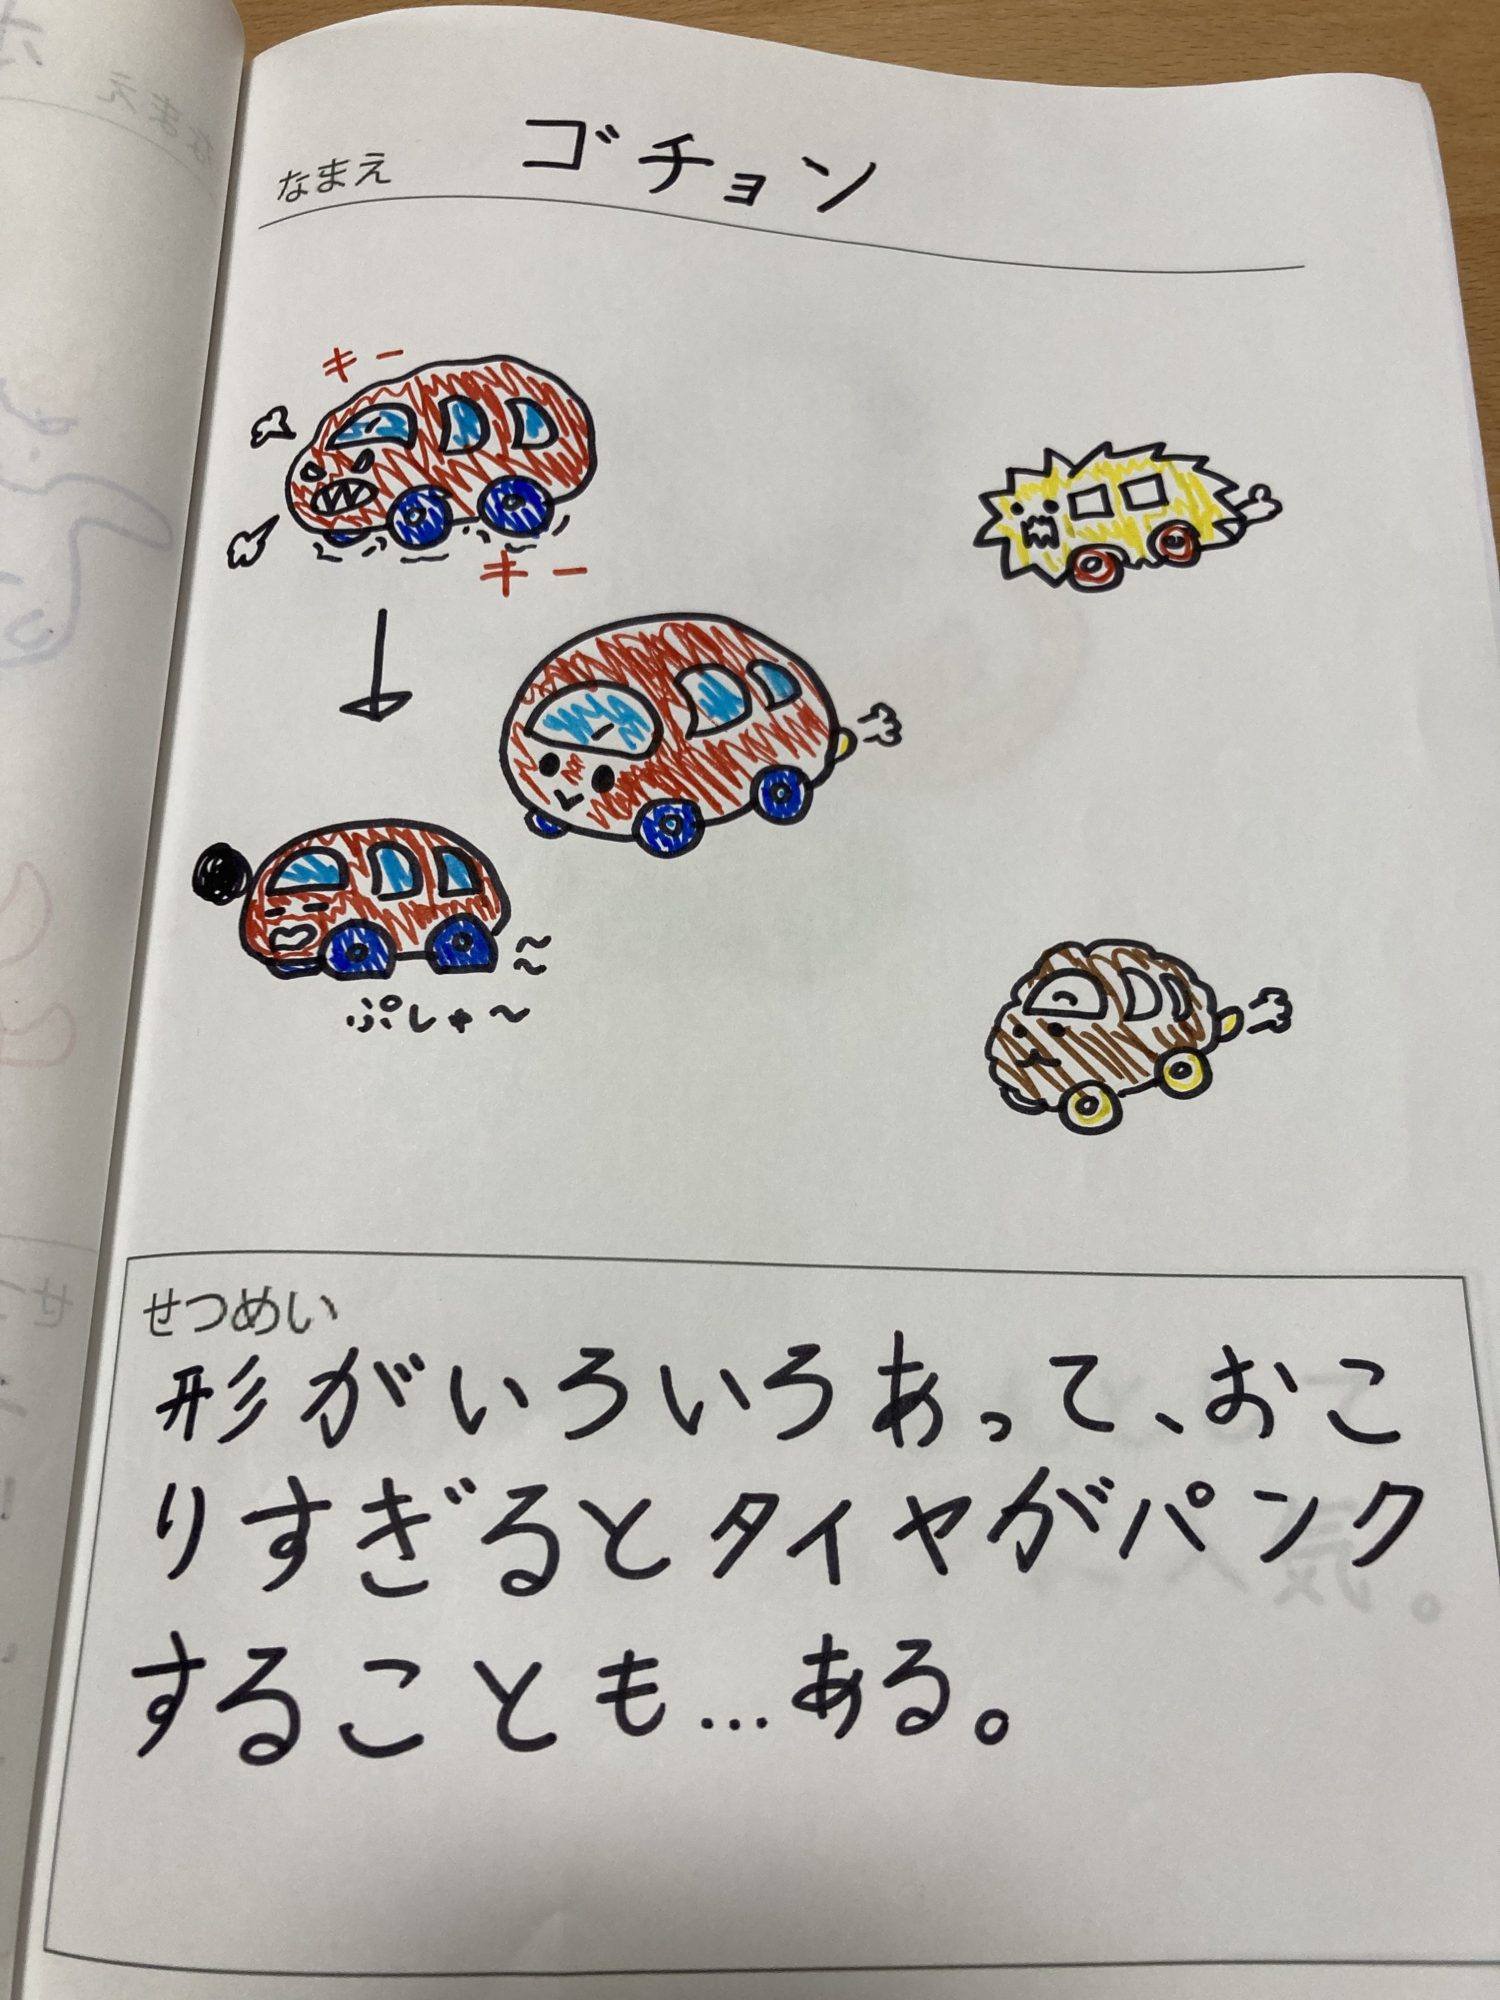 なまえ ゴチョン
キー
キー
ぷしゃ〜
せつめい
形がいろいろあって、おこ
りすぎるとタイヤがパンク
することも…ある。